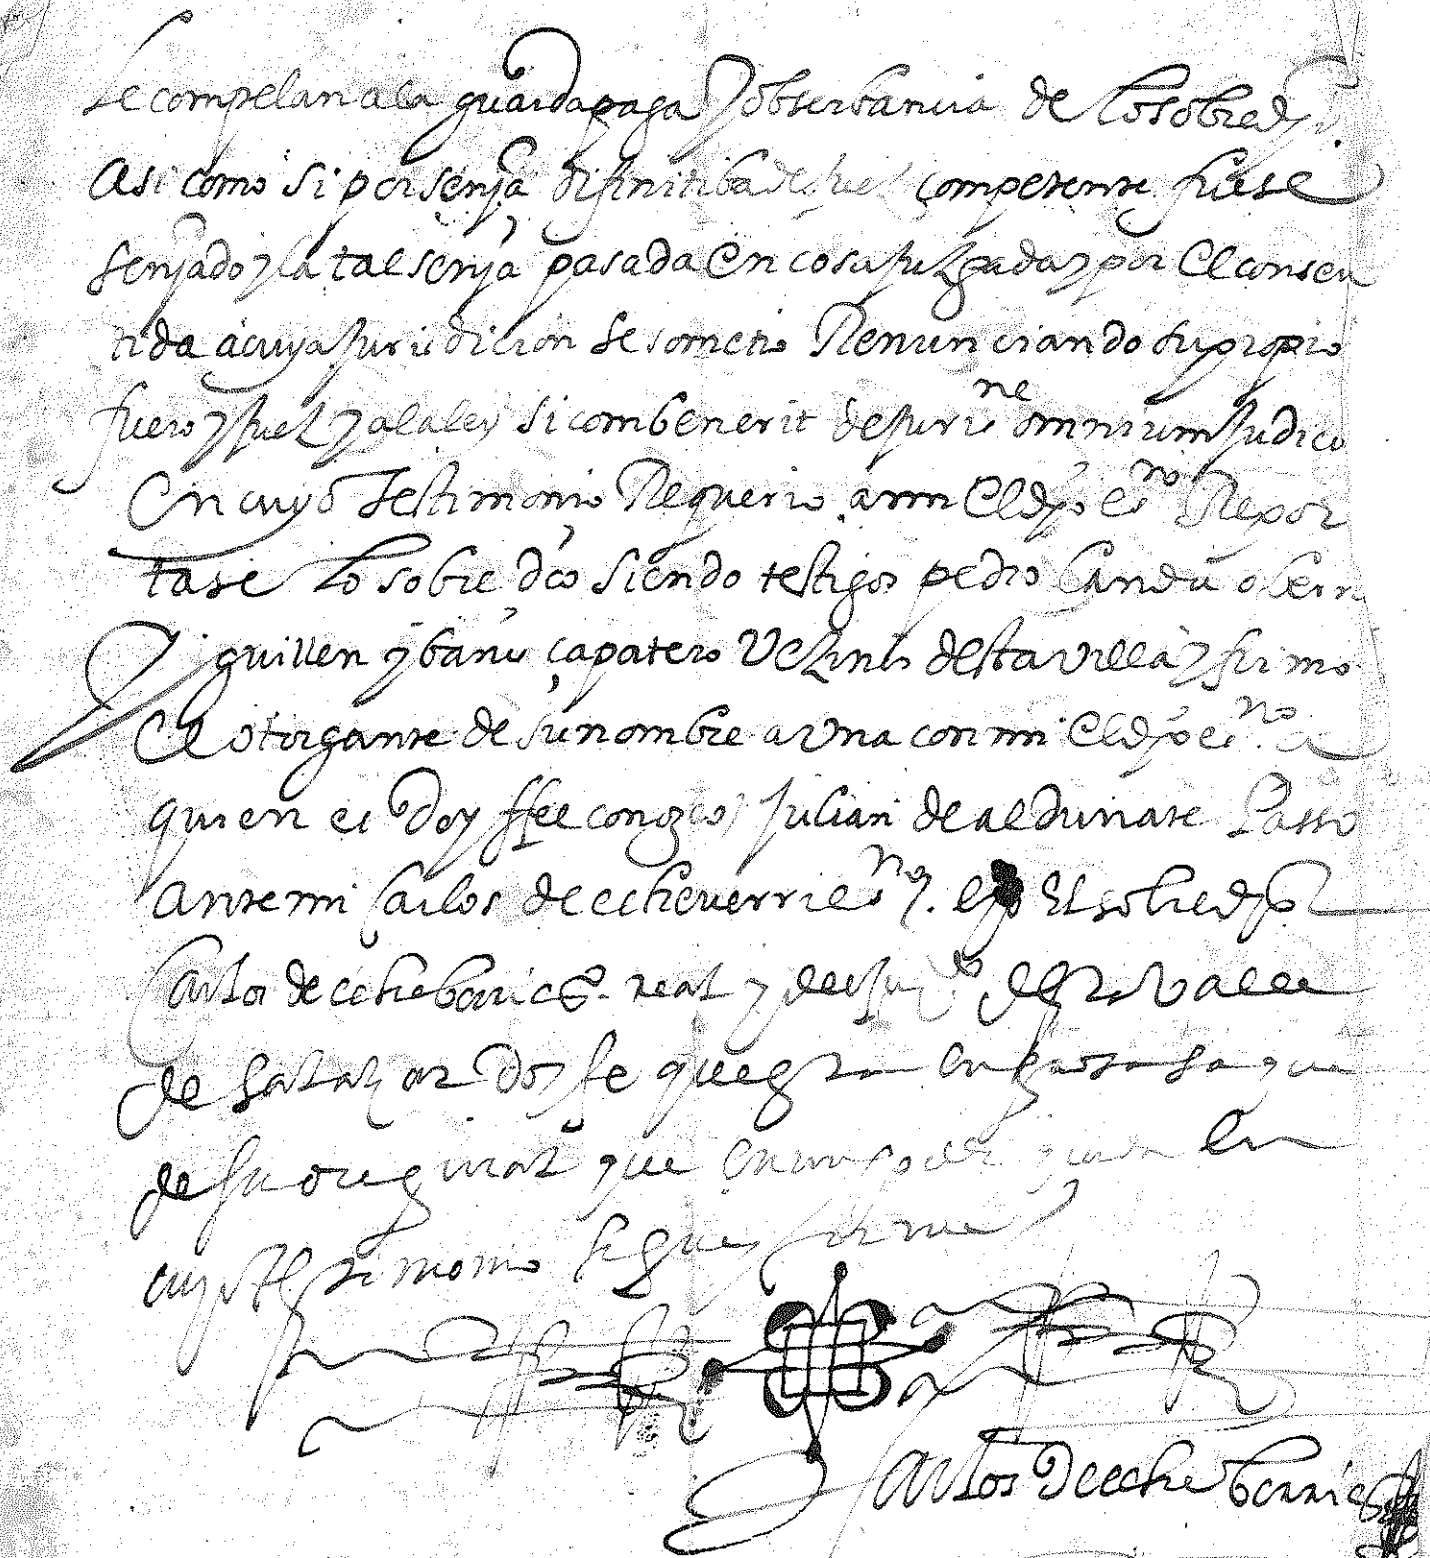 le compelan a la guarda paga y obserbancia de lo sobred^ho
Asi como si por senja difinitiba de juez competente fuese
senjado y la tal senja pasada en cosa juzgada y por el consen
tida a cuya jurisdicion se sometio Renunciando su propio
fuero y juez y a la ley si combenerit de jurisdi^ne omnium judico
En cuyo testimonio Requerio a mi el d^ho es^no Repor
tase lo sobre dho siendo testigos pedro
guillen y capatero Vezinos desta villa y firmo
El otorgante de su nombre a vna con mi el d^ho es^no a
quien io Doy ffee conozco Julian de aldunate Passo
Ante mi Carlos de echeverri es^no El sobred^ho
Carlos de echeberri es^no real y del valle
de Salazar Doy fe que
de su original que en mi poder queda En
cuyo testimonio signe y firme
Carlos de echeberri es^no